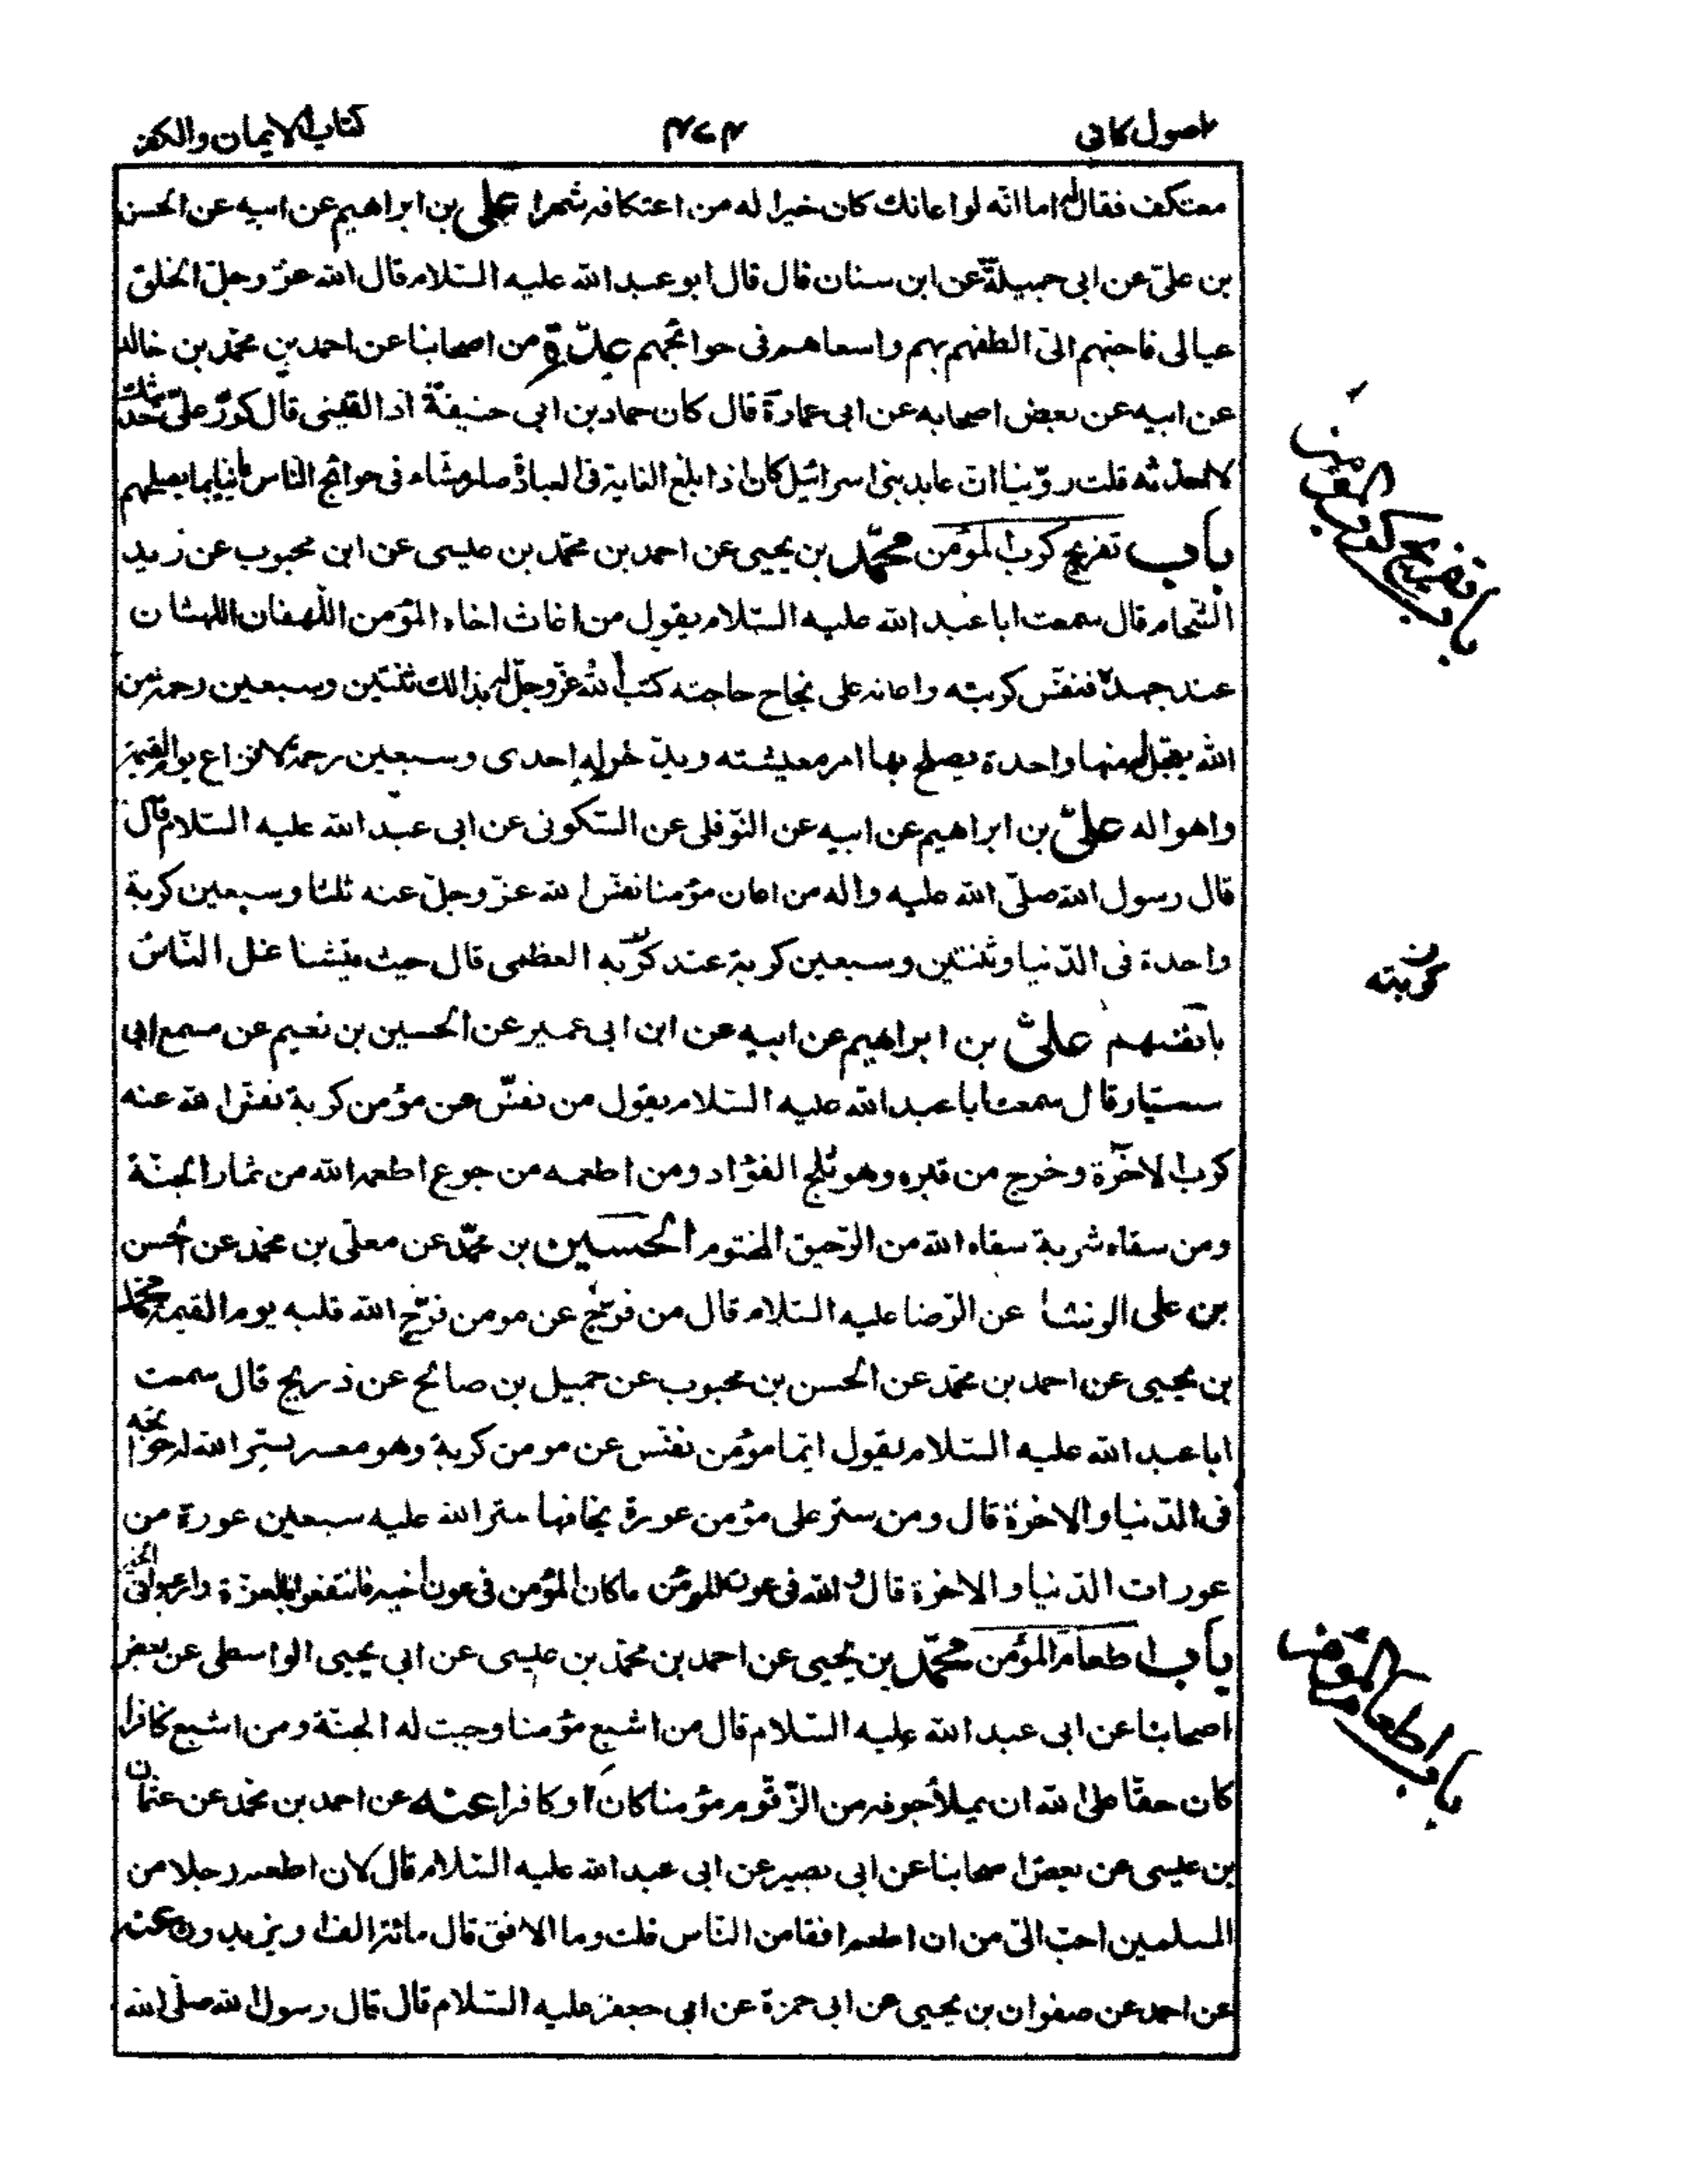 اصول كافى
۴۷۴
كتاب الايمان والكفر
معتكف فقال له اما انّه لو اعانك كان خيرا له من اعتكافه شهرا علي بن ابراهيم عن ابيه عن الحسن
بن علىّ عن ابى جميلة عن ابن سنان قال قال ابو عبد الله عليه السّلام قال الله عزّ وجلّ الخلق
عيالى فاحبّهم الىّ الطفهم بهم واسعاهم فى حوائجهم عدّة من اصحابنا عن احمد بن محمّد بن خالد
عن ابيه عن بعض اصحابه عن ابى عمارة قال كان حماد بن ابى حنيفة اذا لقينى قال كرّر علىّ حديثك
فاحدّثه قلت روّينا انّ عابد بنى اسرائيل كان اذا بلغ الغاية فى العبادة صار مشّاء فى حوائج النّاس عانيا بما يصلحهم
باب تفريج كرب المؤمن محمّد بن يحيى عن احمد بن محمّد بن عيسى عن ابن محبوب عن زيد
الشّحام قال سمعت ابا عبد الله عليه السّلام يقول من اغاث اخاه المؤمن اللّهفان اللهثان
عند جهده فنفّس كربته واعانه على نجاح حاجته كتب الله عزّ وجلّ له بذالك ثنتين وسبعين رحمة من
الله يعجّل له منها واحدة يصلح بها امر معيشته ويدّخر له احدى وسبعين رحمة لافزاع يوم القيمة
واهواله علىّ بن ابراهيم عن ابيه عن النّوفلى عن السّكونى عن ابى عبد الله عليه السّلام قال
قال رسول الله صلّى الله عليه واله من اعان مؤمنا نفّس الله عزّ وجلّ عنه ثلثا وسبعين كربة
واحدة فى الدّنيا وثنتين وسبعين كربة عند كربه العظمى قال حيث يتشاغل النّاس
بانفسهم علىّ بن ابراهيم عن ابيه عن ابن ابى عمير عن الحسين بن نعيم عن مسمع ابى
سيّار قال سمعت ابا عبد الله عليه السّلام يقول من نفّس عن مؤمن كربة نفّس الله عنه
كرب الاخرة وخرج من قبره وهو ثلج الفؤاد ومن اطعمه من جوع اطعمه الله من ثمار الجنّة
ومن سقاه شربة سقاه الله من الرّحيق المختوم الحسين بن محمّد عن معلّى بن محمد عن الحسن
بن على الوشا عن الرّضا عليه السّلام قال من فرّج عن مومن فرّج الله قلبه يوم القيمة محمد
بن يحيى عن احمد بن محمّد عن الحسن بن محبوب عن جميل بن صالح عن ذريح قال سمعت
ابا عبد الله عليه السّلام يقول ايّما مؤمن نفّس عن مومن كربة وهو معسر يسّر الله له حوائجه
فى الدّنيا والاخرة قال ومن ستر على مؤمن عورة يخافها ستر الله عليه سبعين عورة من
عورات الدّنيا والاخرة قال والله فى عون المؤمن ماكان المؤمن فى عون اخيه فانتفعوا بالعظة وارغبوا فى الخير
باب اطعام المؤمن محمّد بن يحيى عن احمد بن محمّد بن عيسى عن ابى يحيى الواسطى عن بعض
اصحابنا عن ابى عبد الله عليه السّلام قال من اشبع مؤمنا وجبت له الجنّة ومن اشبع كافرا
كان حقّا على الله ان يملأ جوفه من الزّقّوم مؤمنا كان او كافرا عنه عن احمد بن محمّد عن عثمان
بن عيسى عن بعض اصحابنا عن ابى بصير عن ابى عبد الله عليه السّلام قال لان اطعم رجلا من
المسلمين احبّ الىّ من ان اطعم افقا من النّاس قلت وما الافق قال مائة الف او يزيدون عنه
عن احمد عن صفوان بن يحيى عن ابى حمزة عن ابى جعفر عليه السّلام قال قال رسول الله صلّى الله
باب تفريج كرب المؤمن
كربته
باب اطعام المؤمن